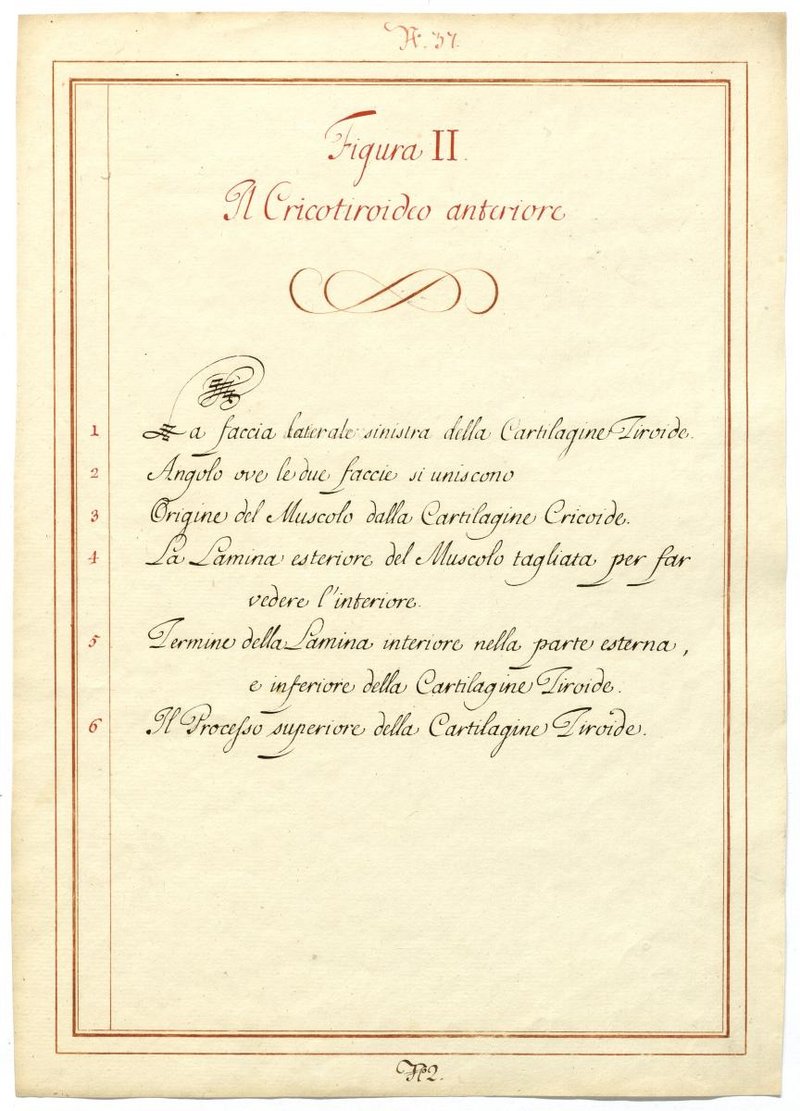 N. 37.
Figura II.
Il Cricotiroideo anteriore
1 La faccia laterale sinistra della Cartilagine Tiroide.
2 Angolo ove le due faccie si uniscono
3 Origine del Muscolo dalla Cartilagine Cricoide.
4 La Lamina esteriore del Muscolo tagliata per far
vedere l'interiore.
5 Termine della Lamina interiore nella parte esterna,
e inferiore della Cartilagine Tiroide.
6 Il Processo superiore della Cartilagine Tiroide.